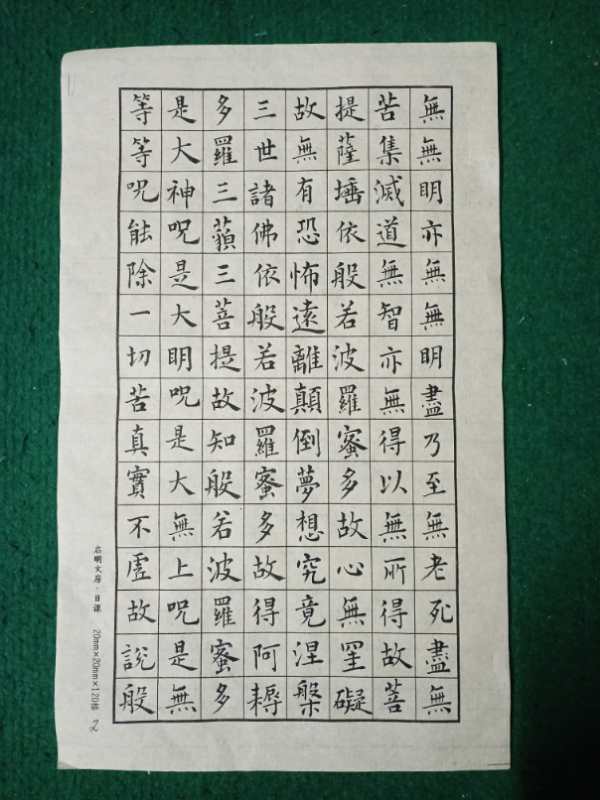 無無明亦無無明盡乃至無老死盡無
苦集滅道無智亦無得以無所得故菩
提薩埵依般若波羅蜜多故心無罣礙
故無有恐怖遠離顛倒夢想究竟涅槃
三世諸佛依般若波羅蜜多故得阿耨
多羅三藐三菩提故知般若波羅蜜多
是大神呪是大明呪是大無上呪是無
等等呪能除一切苦真實不虛故說般
启明文房·日课 20mm×20mm×120格 2